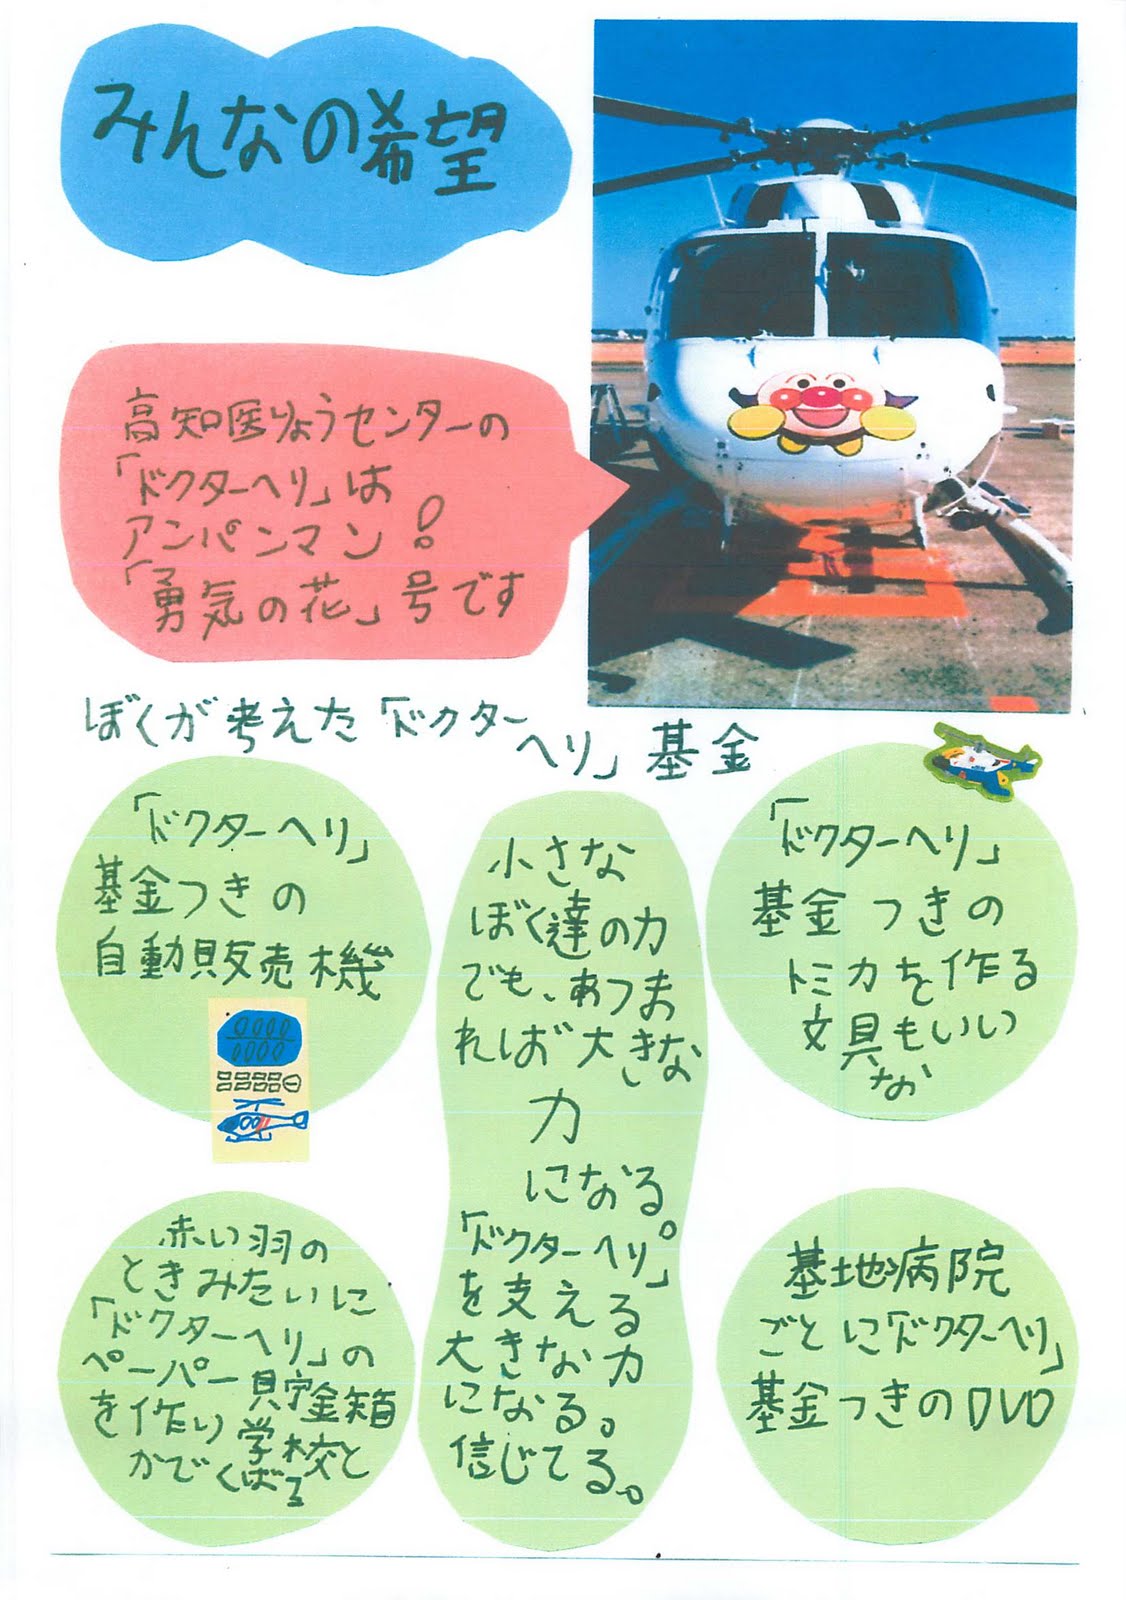 みんなの希望
高知医りょうセンターの
「ドクターヘリ」は
アンパンマン!
「勇気の花」号です
ぼくが考えた「ドクター
ヘリ」基金
「ドクターヘリ」
基金つきの
自動販売機
小さな
ぼく達の力
でも、あつま
れば大きな
力
になる。
「ドクターヘリ」
を支える
大きな力
になる。
信じてる。
「ドクターヘリ」
基金つきの
トミカを作る
文具もいい
な
赤い羽の
ときみたいに
「ドクターヘリ」の
ペーパー貯金箱
を作り学校と
かでくばる
基地病院
ごとに「ドクターヘリ」
基金つきのDVD